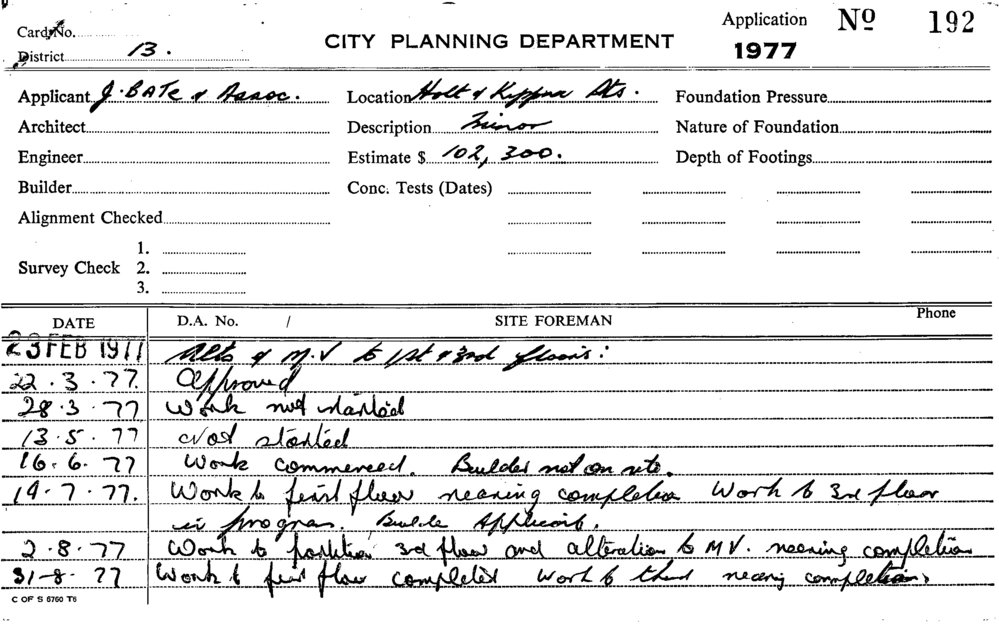 Card No.
Application No 192
District 13.
CITY PLANNING DEPARTMENT
1977
Applicant J. BATE & Assoc. Location Holt & Kippax Sts. Foundation Pressure
Architect Description Minor Nature of Foundation
Engineer Estimate $ 102,300. Depth of Footings
Builder Conc. Tests (Dates)
Alignment Checked
1.
Survey Check 2.
3.
DATE D.A. No. / SITE FOREMAN Phone
23 FEB 1977 Alts & M.V to 1st & 3rd floors:
22.3.77. Approved
28.3.77 Work not started
13.5.77 Not started
16.6.77 Work commenced. Builder not on site.
19.7.77. Work to first floor nearing completion Work to 3rd floor
in progress. Builder Applicant.
2.8.77 Work to partition 3rd floor and alteration to M V. nearing completion
31-8-77 Work to first floor completed work to third nearing completion
C OF S 6760 T6